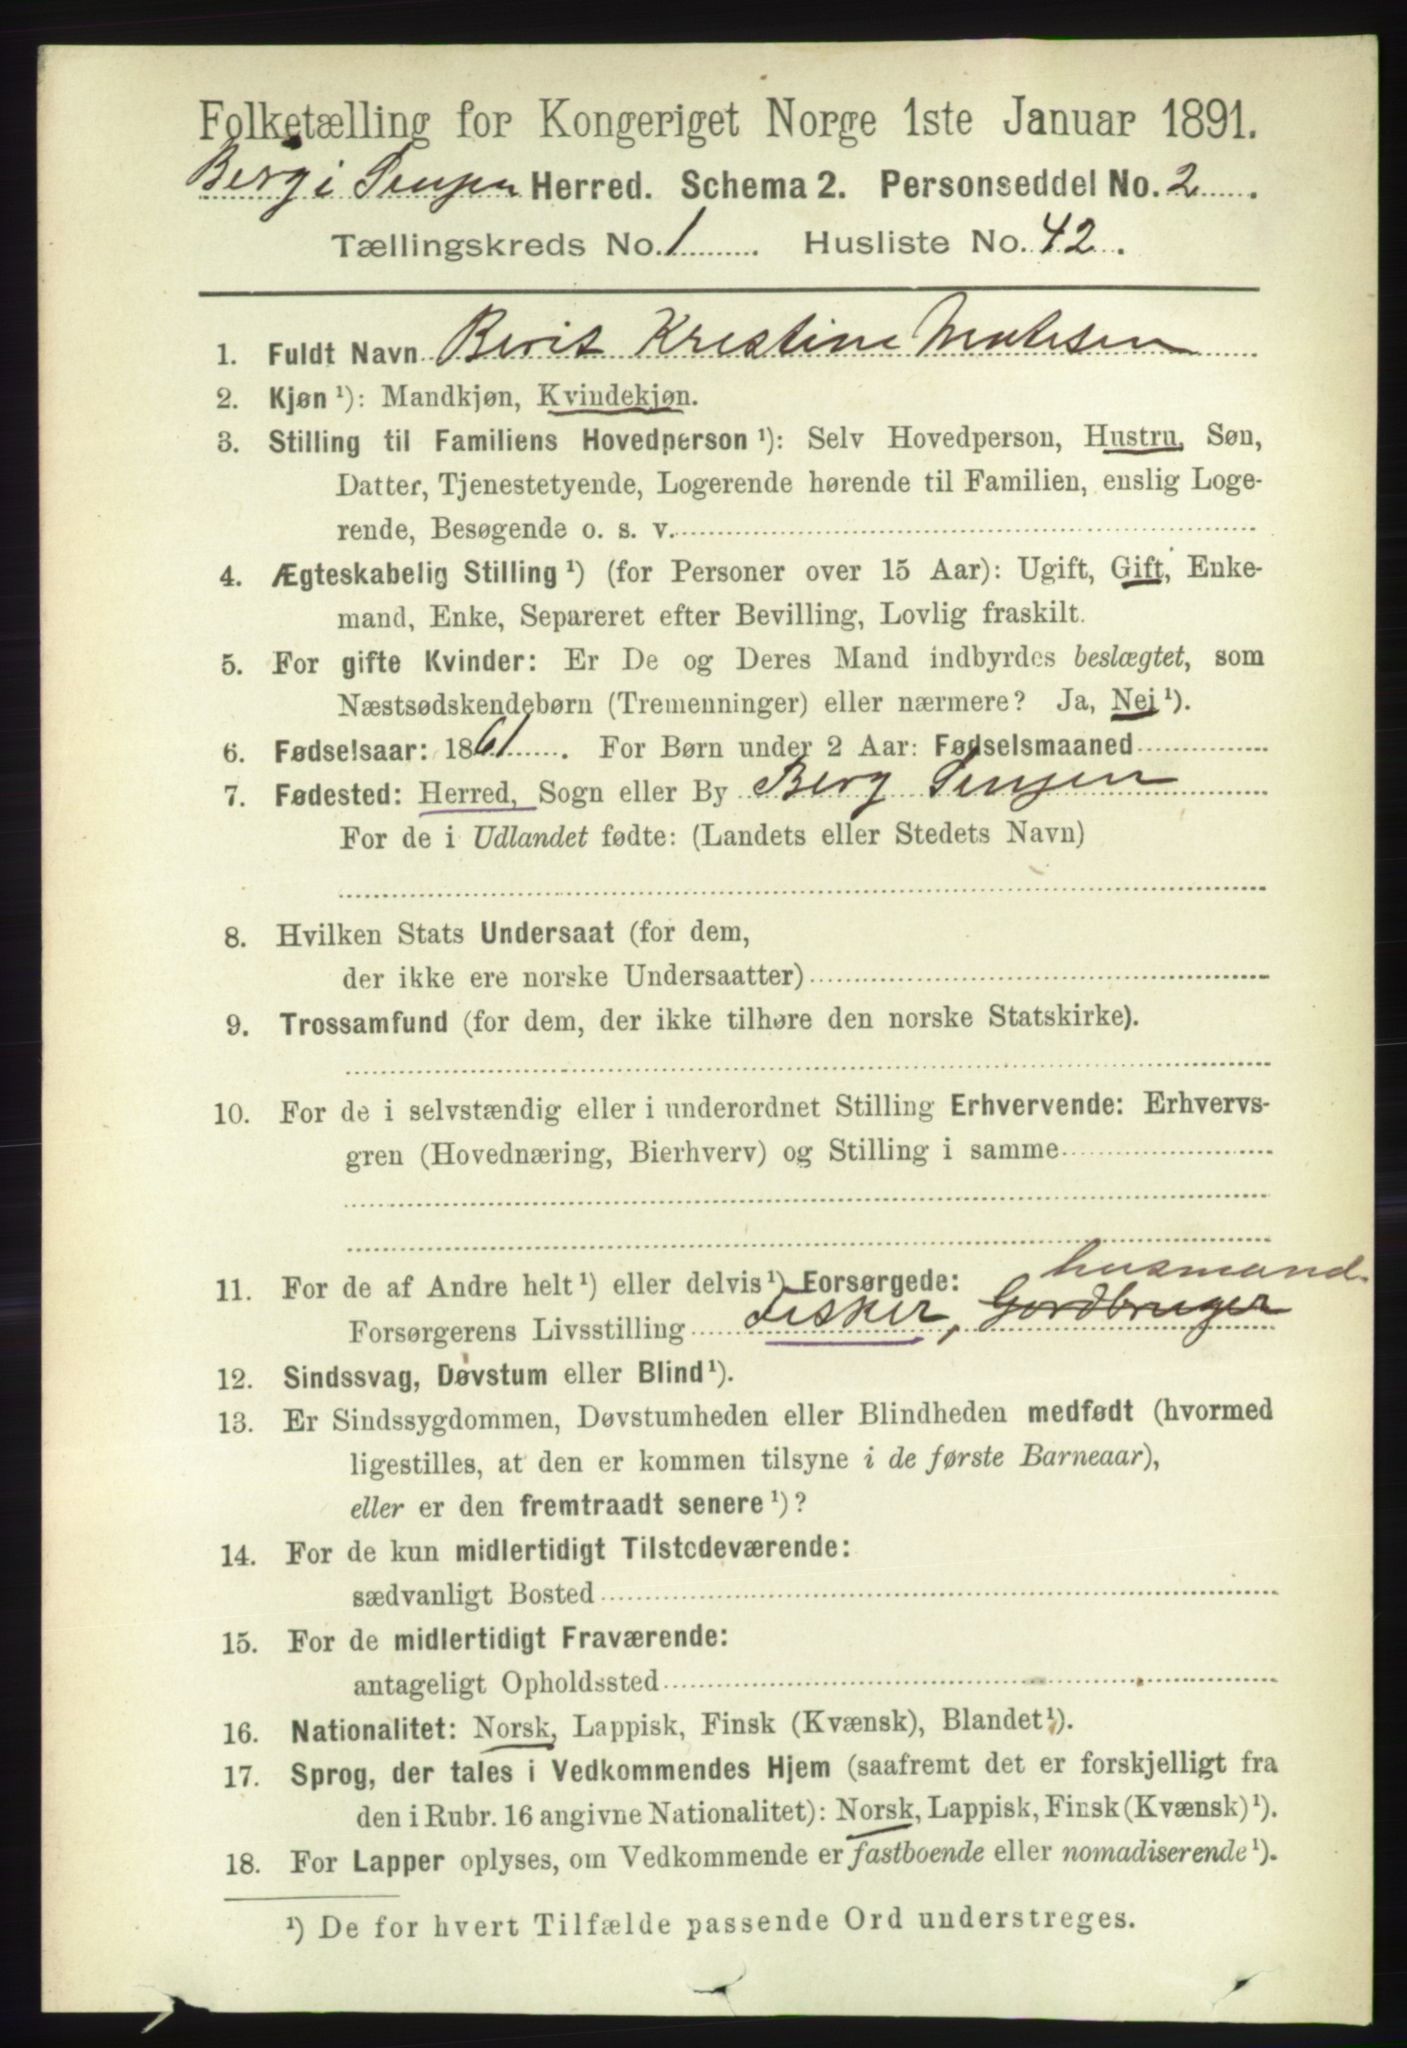 Folketælling for Kongeriget Norge 1ste Januar 1891.
Berg i Senjen Herred. Schema 2. Personseddel No. 2
Tællingskreds No. 1 Husliste No. 42.
1. Fuldt Navn Berit Kristine Matisen
2. Kjøn ¹): Mandkjøn, Kvindekjøn.
3. Stilling til Familiens Hovedperson ¹): Selv Hovedperson, Hustru, Søn,
Datter, Tjenestetyende, Logerende hørende til Familien, enslig Loge-
rende, Besøgende o. s. v.
4. Ægteskabelig Stilling ¹) (for Personer over 15 Aar): Ugift, Gift, Enke-
mand, Enke, Separeret efter Bevilling, Lovlig fraskilt.
5. For gifte Kvinder: Er De og Deres Mand indbyrdes beslægtet, som
Næstsødskendebørn (Tremenninger) eller nærmere? Ja, Nej ¹).
6. Fødselsaar: 1861. For Børn under 2 Aar: Fødselsmaaned
7. Fødested: Herred, Sogn eller By Berg Senjen
For de i Udlandet fødte: (Landets eller Stedets Navn)
8. Hvilken Stats Undersaat (for dem,
der ikke ere norske Undersaatter)
9. Trossamfund (for dem, der ikke tilhøre den norske Statskirke).
10. For de i selvstændig eller i underordnet Stilling Erhvervende: Erhvervs-
gren (Hovednæring, Bierhverv) og Stilling i samme
husmand
11. For de af Andre helt ¹) eller delvis ¹) Forsørgede:
Forsørgerens Livsstilling Fisker, Gordbruger
12. Sindssvag, Døvstum eller Blind ¹).
13. Er Sindssygdommen, Døvstumheden eller Blindheden medfødt (hvormed
ligestilles, at den er kommen tilsyne i de første Barneaar),
eller er den fremtraadt senere ¹)?
14. For de kun midlertidigt Tilstedeværende:
sædvanligt Bosted
15. For de midlertidigt Fraværende:
antageligt Opholdssted
16. Nationalitet: Norsk, Lappisk, Finsk (Kvænsk), Blandet ¹).
17. Sprog, der tales i Vedkommendes Hjem (saafremt det er forskjelligt fra
den i Rubr. 16 angivne Nationalitet): Norsk, Lappisk, Finsk (Kvænsk) ¹).
18. For Lapper oplyses, om Vedkommende er fastboende eller nomadiserende ¹).
¹) De for hvert Tilfælde passende Ord understreges.